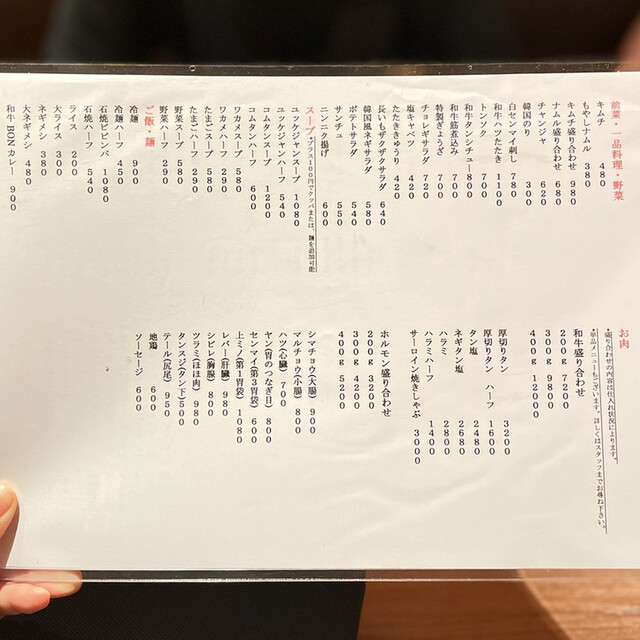 前菜・一品料理・野菜
キムチ 480
もやしナムル 380
キムチ盛り合わせ 980
ナムル盛り合わせ 680
チャンジャ 620
韓国のり 300
白センマイ刺し 780
和牛ハツたたき 1100
トンソク 700
和牛タンシチュー 800
和牛筋煮込み 700
特製ぎょうざ 700
チョレギサラダ 720
塩キャベツ 420
たたききゅうり 420
長いもザクザクサラダ 640
韓国風ネギサラダ 580
ポテトサラダ 540
サンチュ 550
ニンニク揚げ 600
スープ・プラス100円でクッパまたは、麺を追加可能
ユッケジャンスープ 1080
ユッケジャンハーフ 540
コムタンスープ 1200
コムタンハーフ 600
ワカメスープ 580
ワカメハーフ 290
たまごスープ 580
たまごハーフ 290
野菜スープ 580
野菜ハーフ 290
ご飯・麺
冷麺 900
冷麺ハーフ 450
石焼ビビンバ 1080
石焼ハーフ 540
ライス 200
大ライス 300
ネギメシ 380
大ネギメシ 480
和牛BONカレー 900
お肉
・盛り合わせの内容は仕入れ状況によります。
・単品メニューもございます。詳しくはスタッフまでお尋ね下さい。
和牛盛り合わせ
200g 7200
300g 9800
400g 12000
厚切りタン 3200
厚切りタン ハーフ 1600
タン塩 2480
ネギタン塩 2680
ハラミ 2800
ハラミハーフ 1400
サーロイン焼きしゃぶ 3000
ホルモン盛り合わせ
200g 3200
300g 4200
400g 5200
シマチョウ(大腸) 900
マルチョウ(小腸) 800
ハツ(心臓) 700
ヤン(胃のつなぎ目) 800
センマイ(第3胃袋) 600
上ミノ(第1胃袋) 1080
レバー(肝臓) 980
シビレ(胸腺) 800
ツラミ(ほほ肉) 980
タンスジ(タン下) 500
テール(尻尾) 950
地鶏 600
ソーセージ 600